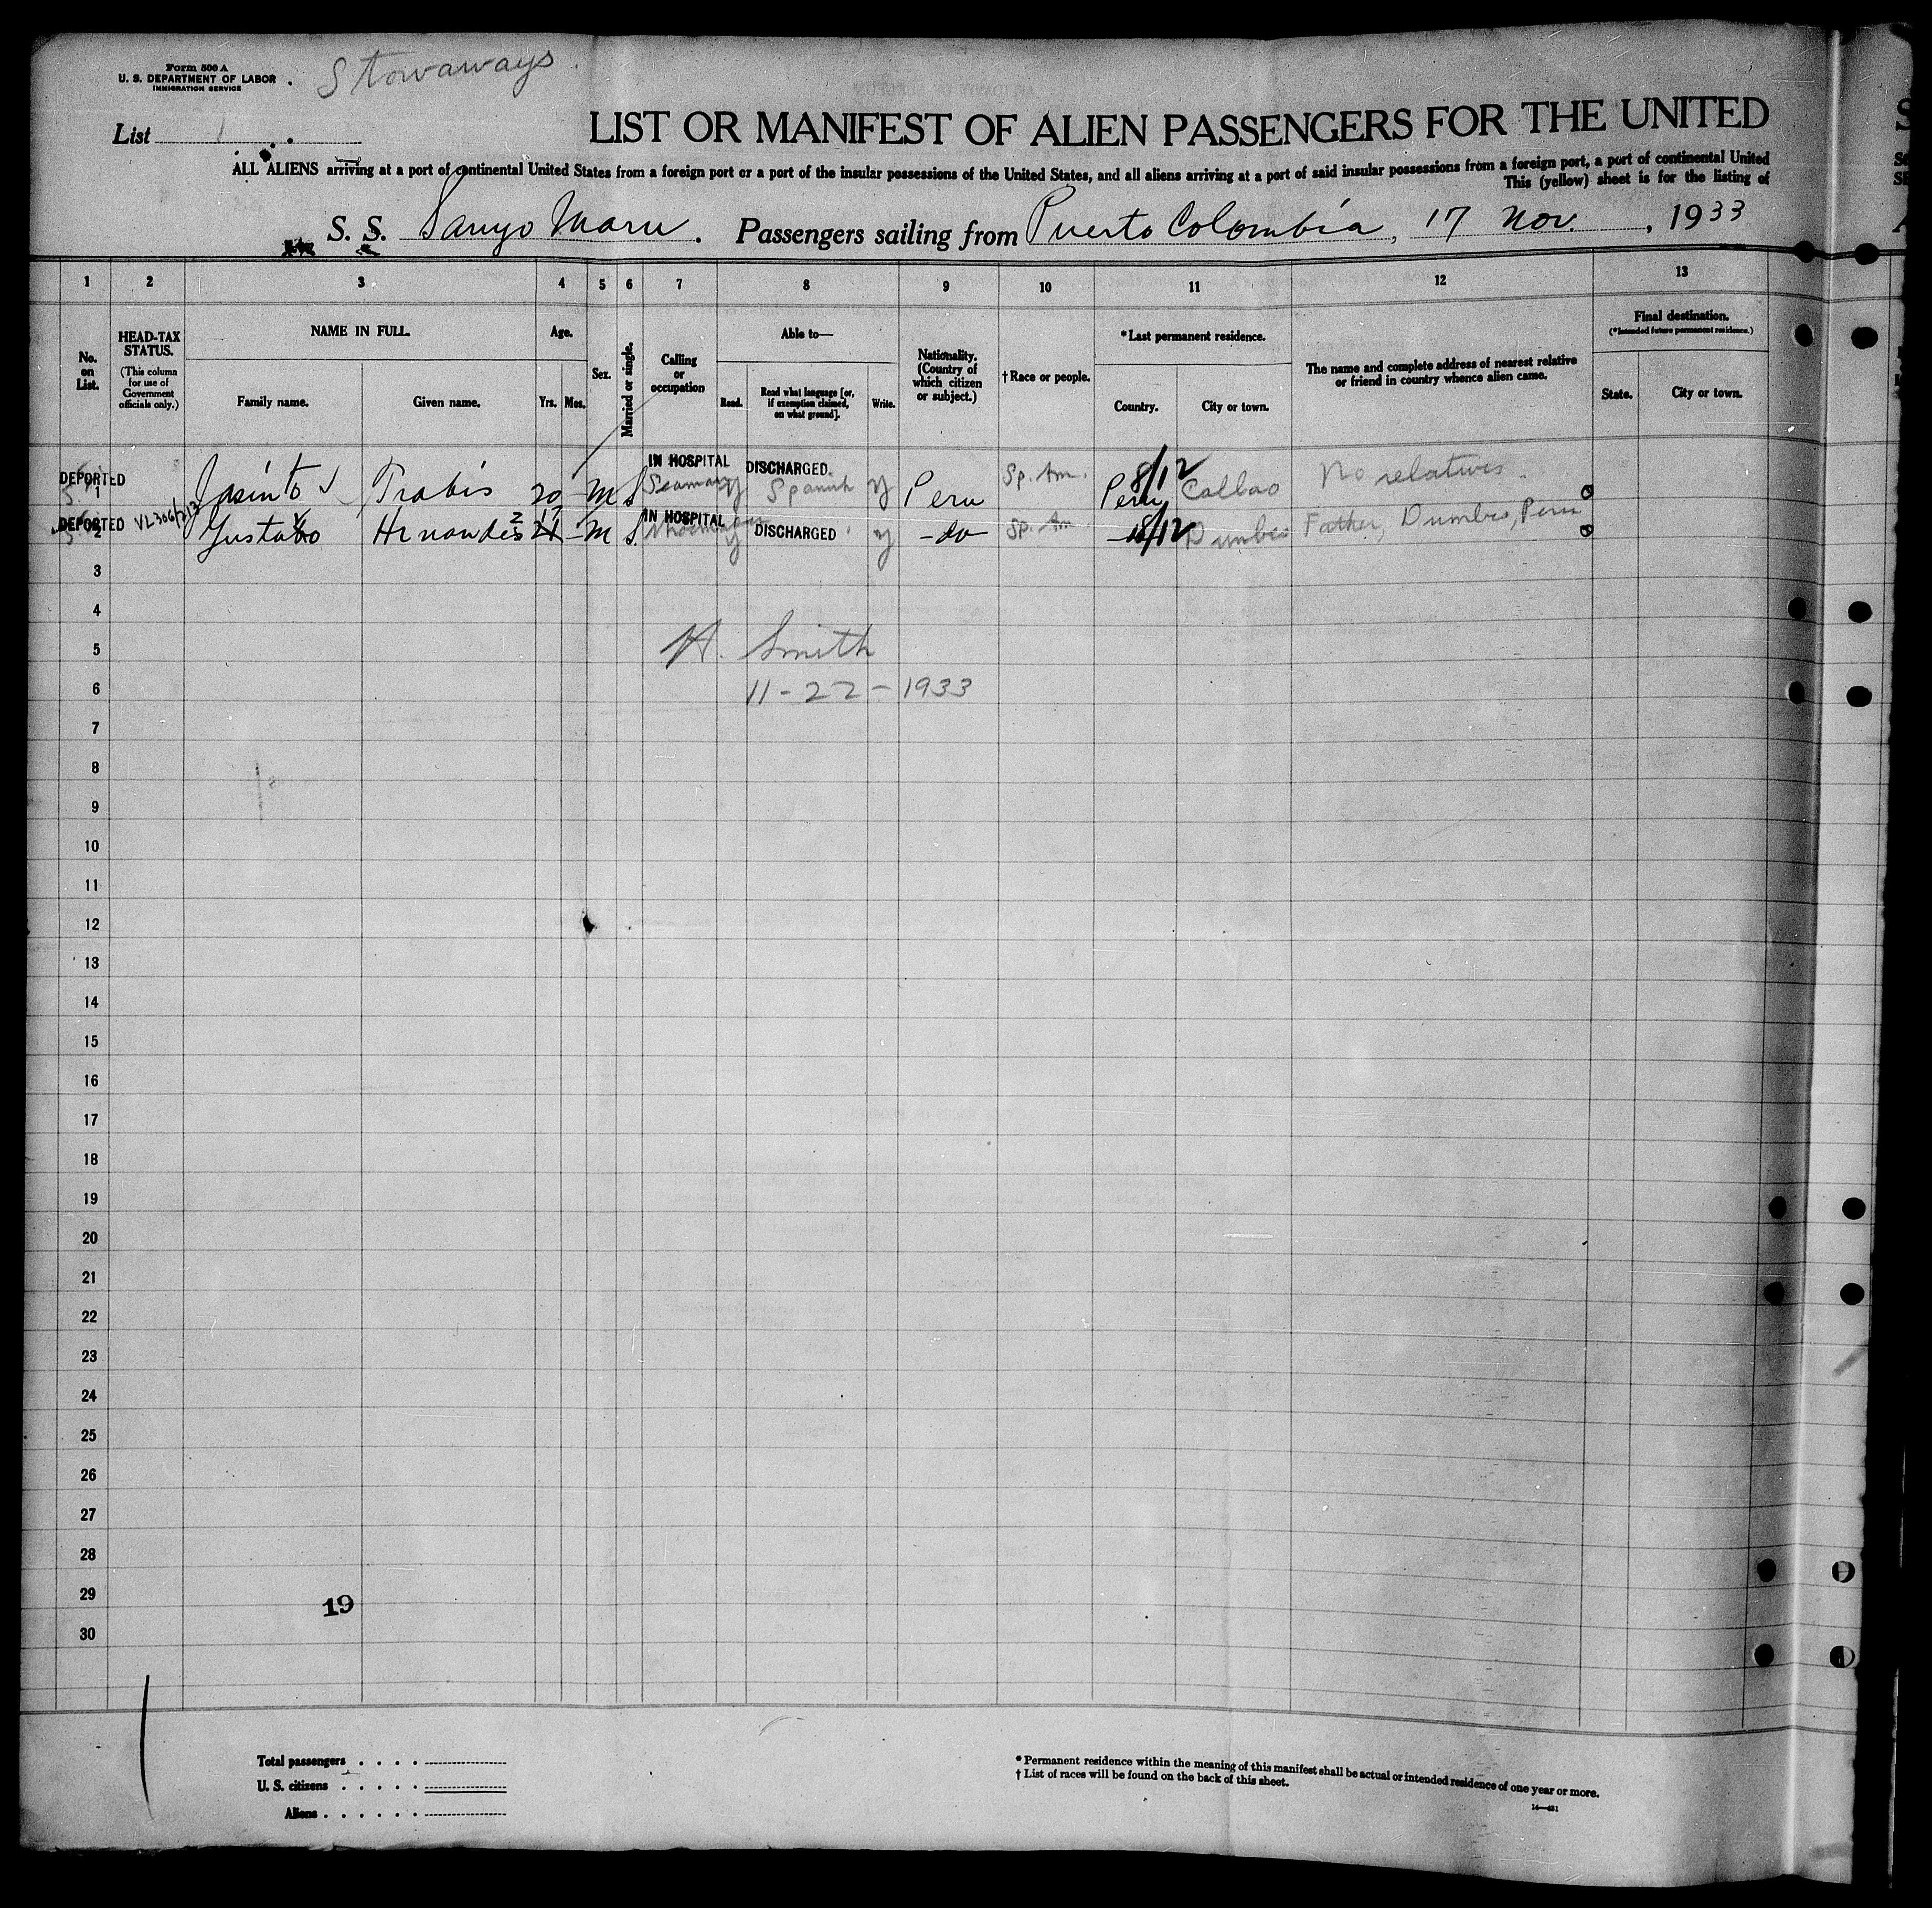 Form 500 A
U. S. DEPARTMENT OF LABOR
IMMIGRATION SERVICE
Stowaways
List 1
LIST OR MANIFEST OF ALIEN PASSENGERS FOR THE UNITED
ALL ALIENS arriving at a port of continental United States from a foreign port or a port of the insular possessions of the United States, and all aliens arriving at a port of said insular possessions from a foreign port, a port of continental United
This (yellow) sheet is for the listing of
S. S. Sanyo Maru. Passengers sailing from Puerto Colombia, 17 Nov., 1933
1 2 3 4 5 6 7 8 9 10 11 12 13
No. on List.
HEAD-TAX STATUS.
(This column for use of Government officials only.)
NAME IN FULL.
Family name. Given name.
Age.
Yrs. Mos.
Sex.
Married or single.
Calling or occupation
Able to—
Read. Read what language [or, if exemption claimed, on what ground]. Write.
Nationality. (Country of which citizen or subject.)
† Race or people.
*Last permanent residence.
Country. City or town.
The name and complete address of nearest relative or friend in country whence alien came.
Final destination.
(*Intended future permanent residence.)
State. City or town.
IN HOSPITAL DISCHARGED 8/12
DEPORTED 1 Jasinto Trabis 20 - M S Seaman y Spanish y Peru Sp. Am. Peru Callao No relatives
IN HOSPITAL DISCHARGED 8/12
DEPORTED 2 Gustabo Hernandes 21 17 - M S y y -do- Sp. Am Dumbes Father, Dumbes, Peru
3
4
5
H. Smith
6
11-22-1933
7
8
9
10
11
12
13
14
15
16
17
18
19
20
21
22
23
24
25
26
27
28
29
19
30
Total passengers . . . .
U. S. citizens . . . . .
Aliens . . . . . .
* Permanent residence within the meaning of this manifest shall be actual or intended residence of one year or more.
† List of races will be found on the back of this sheet.